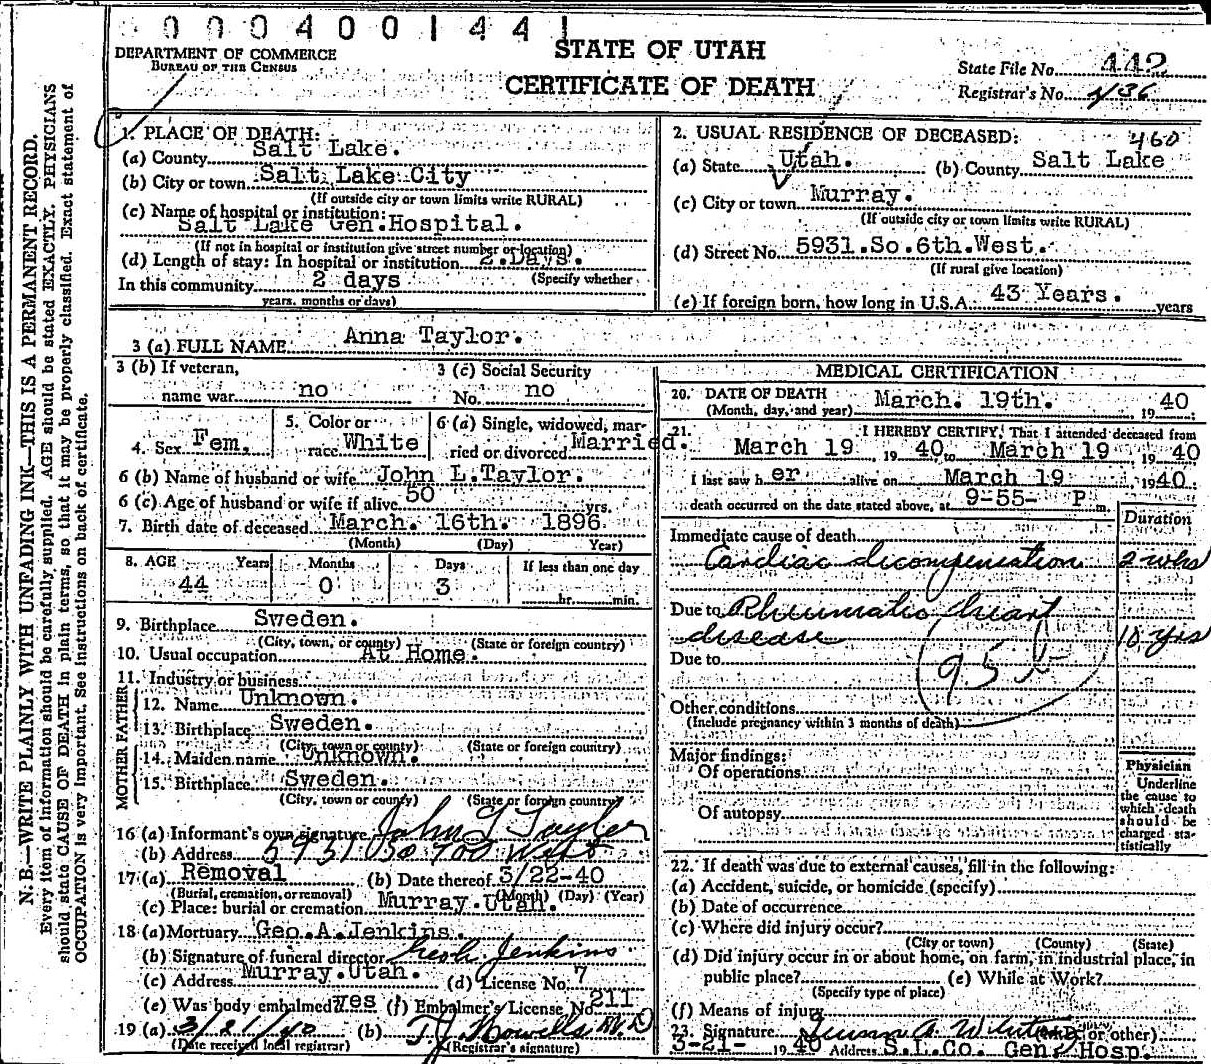 0 0 0 4 0 0 1 4 4 1
DEPARTMENT OF COMMERCE
BUREAU OF THE CENSUS
STATE OF UTAH
CERTIFICATE OF DEATH
State File No. 442
Registrar's No. 436
N. B.—WRITE PLAINLY WITH UNFADING INK—THIS IS A PERMANENT RECORD.
Every item of information should be carefully supplied. AGE should be stated EXACTLY. PHYSICIANS
should state CAUSE OF DEATH in plain terms, so that it may be properly classified. Exact statement of
OCCUPATION is very important. See instructions on back of certificate.
1. PLACE OF DEATH:
(a) County Salt Lake.
(b) City or town Salt Lake City
(If outside city or town limits write RURAL)
(c) Name of hospital or institution:
Salt Lake Gen. Hospital.
(If not in hospital or institution give street number or location)
(d) Length of stay: In hospital or institution 2 Days.
(Specify whether
In this community 2 days
years, months or days)
2. USUAL RESIDENCE OF DECEASED: 460
(a) State Utah. (b) County Salt Lake
(c) City or town Murray.
(If outside city or town limits write RURAL)
(d) Street No. 5931.So.6th.West.
(If rural give location)
(e) If foreign born, how long in U.S.A.: 43 Years. years
3 (a) FULL NAME Anna Taylor.
3 (b) If veteran,
name war no
3 (c) Social Security
No. no
4. Sex Fem.
5. Color or
race White
6 (a) Single, widowed, mar-
ried or divorced Married.
6 (b) Name of husband or wife John L.Taylor.
6 (c) Age of husband or wife if alive 50 yrs.
7. Birth date of deceased March. 16th. 1896
(Month) (Day) Year)
8. AGE Years Months Days If less than one day
44 0 3 hr. min.
9. Birthplace Sweden.
(City, town, or county) (State or foreign country)
10. Usual occupation At Home.
11. Industry or business
FATHER
12. Name Unknown.
13. Birthplace Sweden.
(City, town or county) (State or foreign country)
MOTHER
14. Maiden name Unknown.
15. Birthplace Sweden.
(City, town or county) (State or foreign country)
16 (a) Informant's own signature John L Taylor
(b) Address 5931 So 700 West
17 (a) Removal (b) Date thereof 3/22-40
(Burial, cremation, or removal) (Month) (Day) (Year)
(c) Place: burial or cremation Murray.Utah.
18 (a) Mortuary Geo.A.Jenkins.
(b) Signature of funeral director Jenkins
(c) Address Murray.Utah. (d) License No. 7
(e) Was body embalmed? yes (f) Embalmer's License No. 211
19 (a) 3/21/40 (b) T J Howells M.D
(Date received local registrar) (Registrar's signature)
MEDICAL CERTIFICATION
20. DATE OF DEATH
(Month, day, and year) March. 19th. 19 40
21. I HEREBY CERTIFY, That I attended deceased from
March 19 19 40 to March 19 19 40
I last saw h er alive on March 19 1940.
death occurred on the date stated above, at 9-55- P m.
Duration
Immediate cause of death
Cardiac decompensation 2 wks
Due to Rheumatic heart
disease 10 yrs
Due to
95 b
Other conditions
(Include pregnancy within 3 months of death)
Major findings:
Of operations
Of autopsy
Physician
Underline
the cause to
which death
should be
charged sta-
tistically
22. If death was due to external causes, fill in the following:
(a) Accident, suicide, or homicide (specify)
(b) Date of occurrence
(c) Where did injury occur?
(City or town) (County) (State)
(d) Did injury occur in or about home, on farm, in industrial place, in
public place? (e) While at Work?
(Specify type of place)
(f) Means of injury
23. Signature (M.D. or other)
3-21- 19 40 Address S.L.Co. Gen. Hosp.